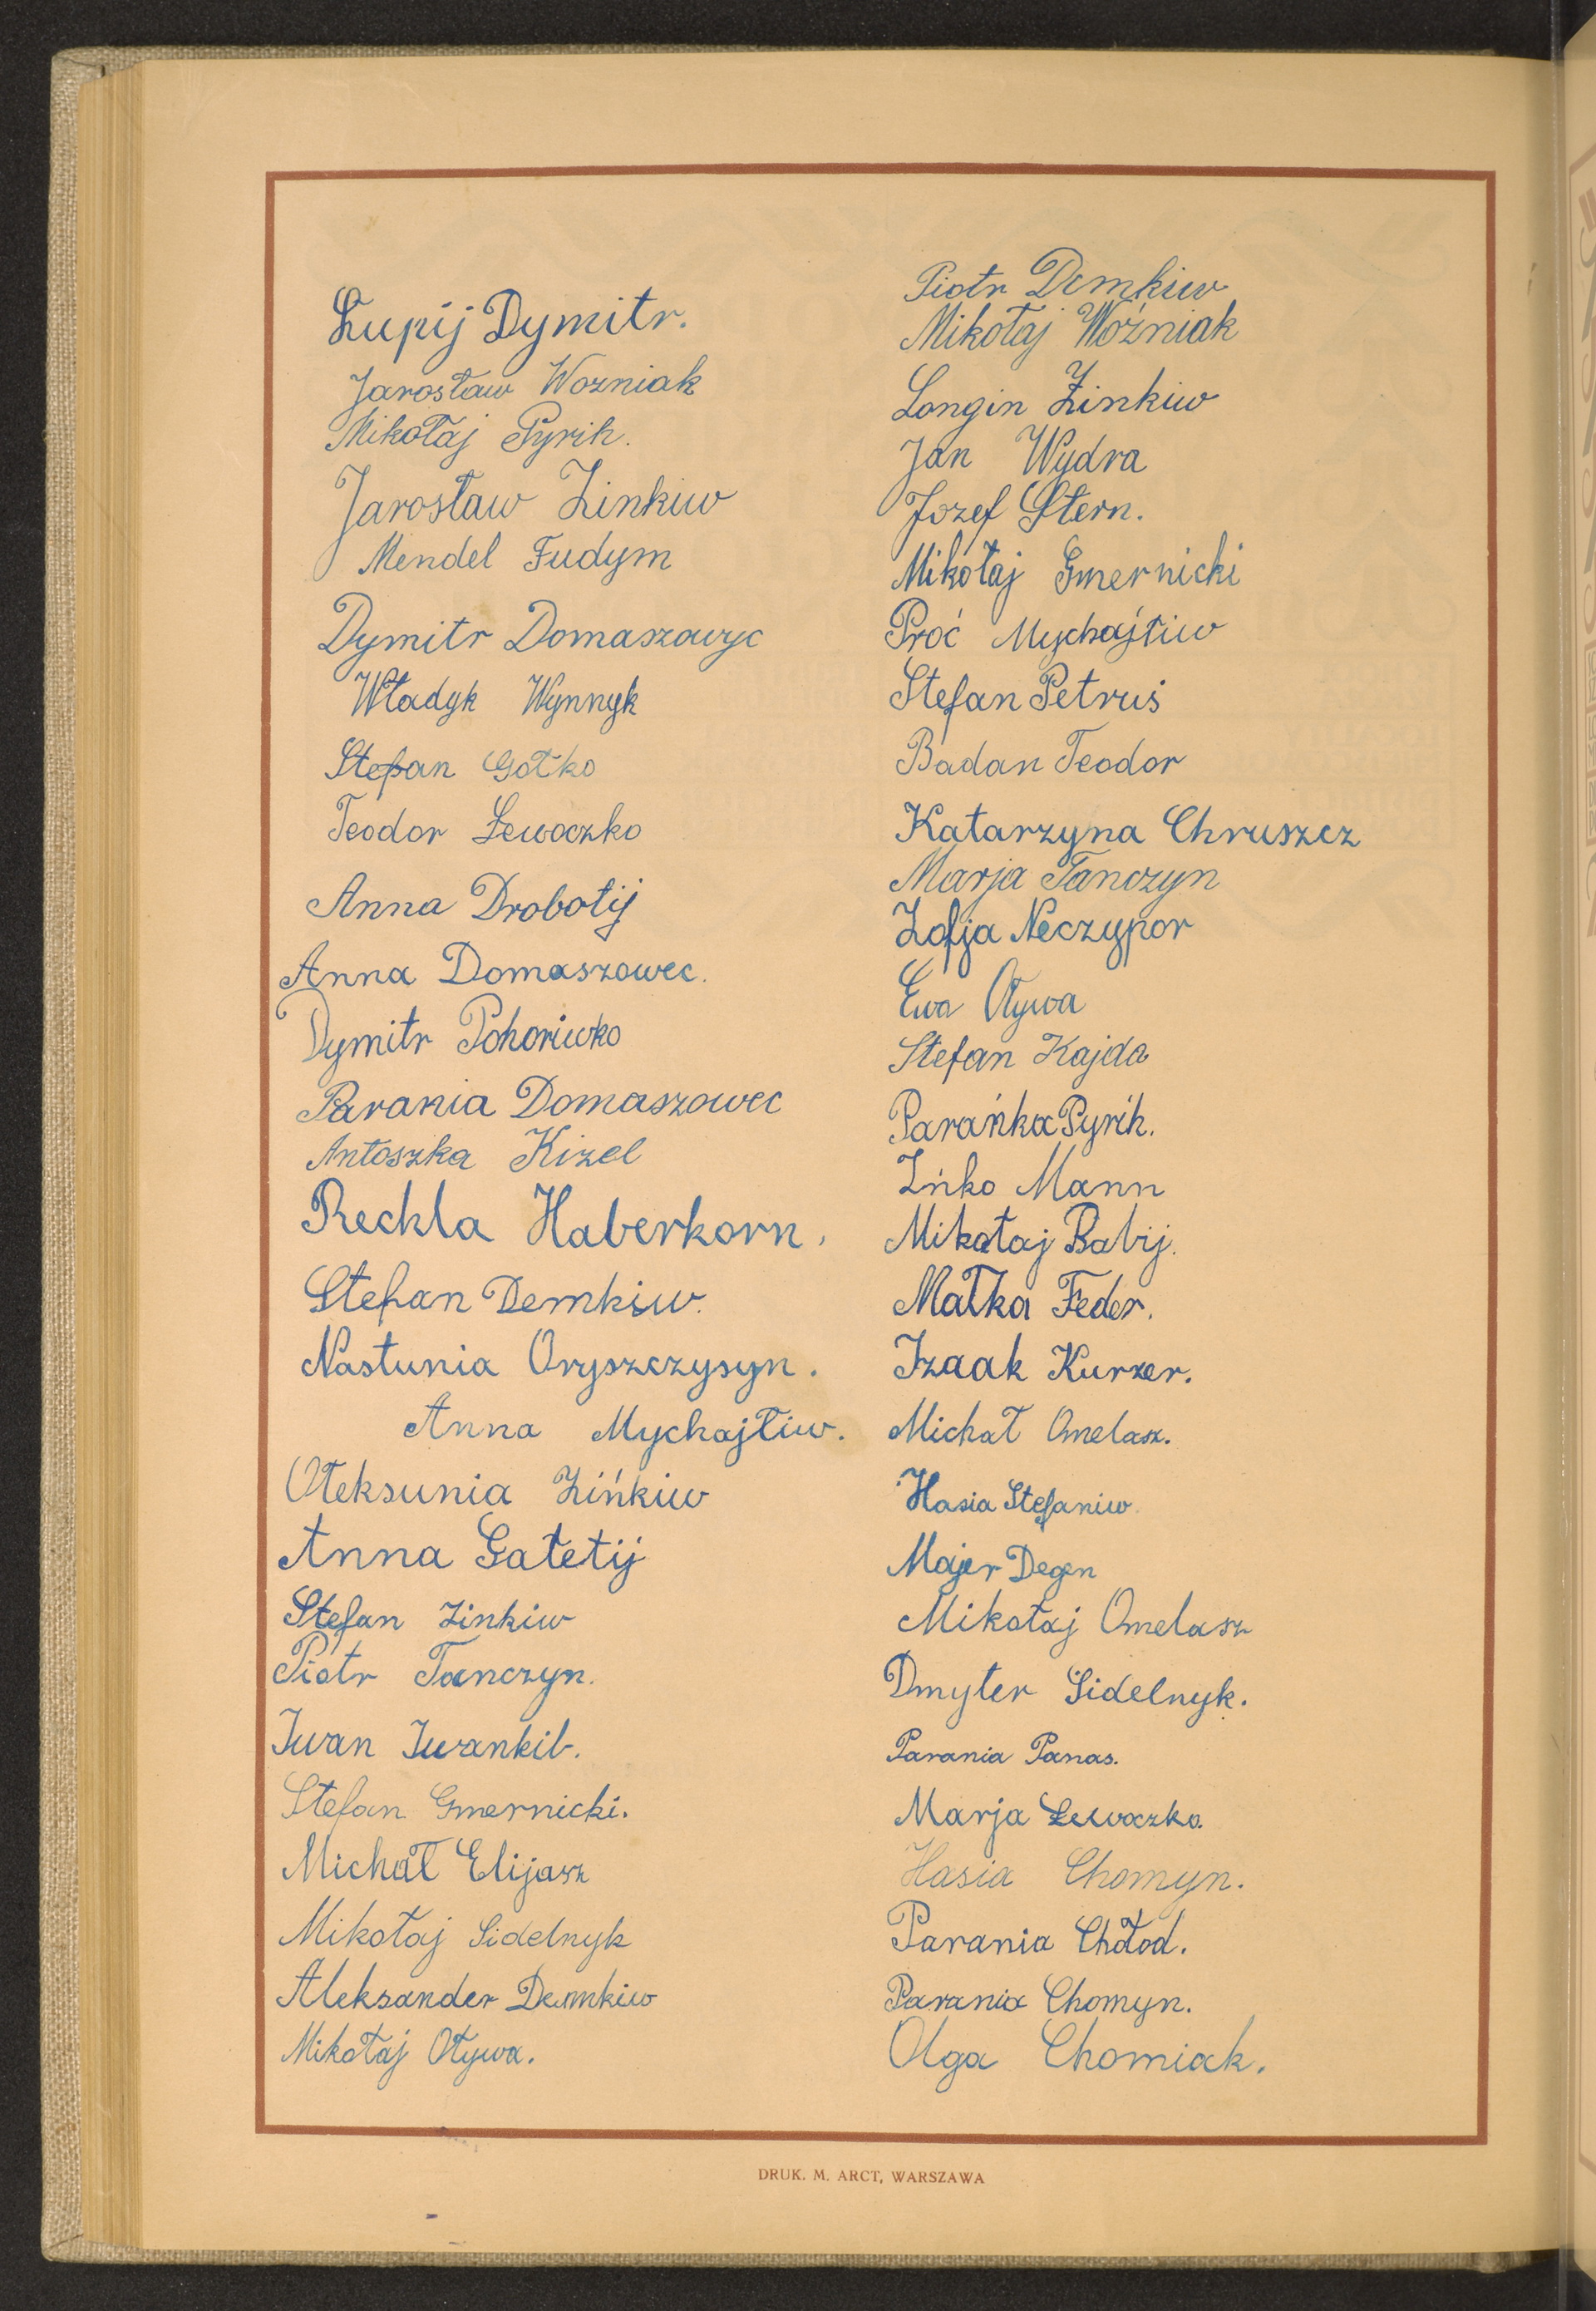 Łupij Dymitr.
Jarosław Wozniak
Mikołaj Pyrih.
Jarosław Zinkiw
Mendel Fudym
Dymitr Domaszowyc
Władyk Wynnyk
Stefan Gołko
Teodor Lewoczko
Anna Drobotij
Anna Domaszowec.
Dymitr Pohoriwko
Parania Domaszowec
Antoszka Kizel
Reckla Haberkorn.
Stefan Demkiw.
Nastunia Oryszczysyn.
Anna Mychajłiw.
Ołeksunia Zińkiw
Anna Gałetij
Stefan Zinkiw
Piotr Tanczyn.
Iwan Iwankib.
Stefan Gmernicki.
Michał Elijasz
Mikołaj Sidelnyk
Aleksander Demnkiw
Mikołaj Otywa.
Piotr Demkiw
Mikołaj Woźniak
Longin Zinkiw
Jan Wydra
Jozef Stern.
Mikołaj Gmernicki
Proć Mychajłiw
Stefan Petruś
Badan Teodor
Katarzyna Chruszcz
Marja Tanczyn
Zofja Neczypor
Ewa Otywa
Stefan Kajda
Parańka Pyrih.
Ińko Mann
Mikołaj Babij.
Małka Feder.
Izaak Kurzer.
Michał Omelasz.
Hasia Stefaniw.
Majer Degen
Mikołaj Omelasz
Dmyter Sidelnyk.
Parania Panas.
Marja Lewoczko.
Hasia Chomyn.
Parania Chołod.
Parania Chomyn.
Olga Chomiak.
DRUK. M. ARCT, WARSZAWA